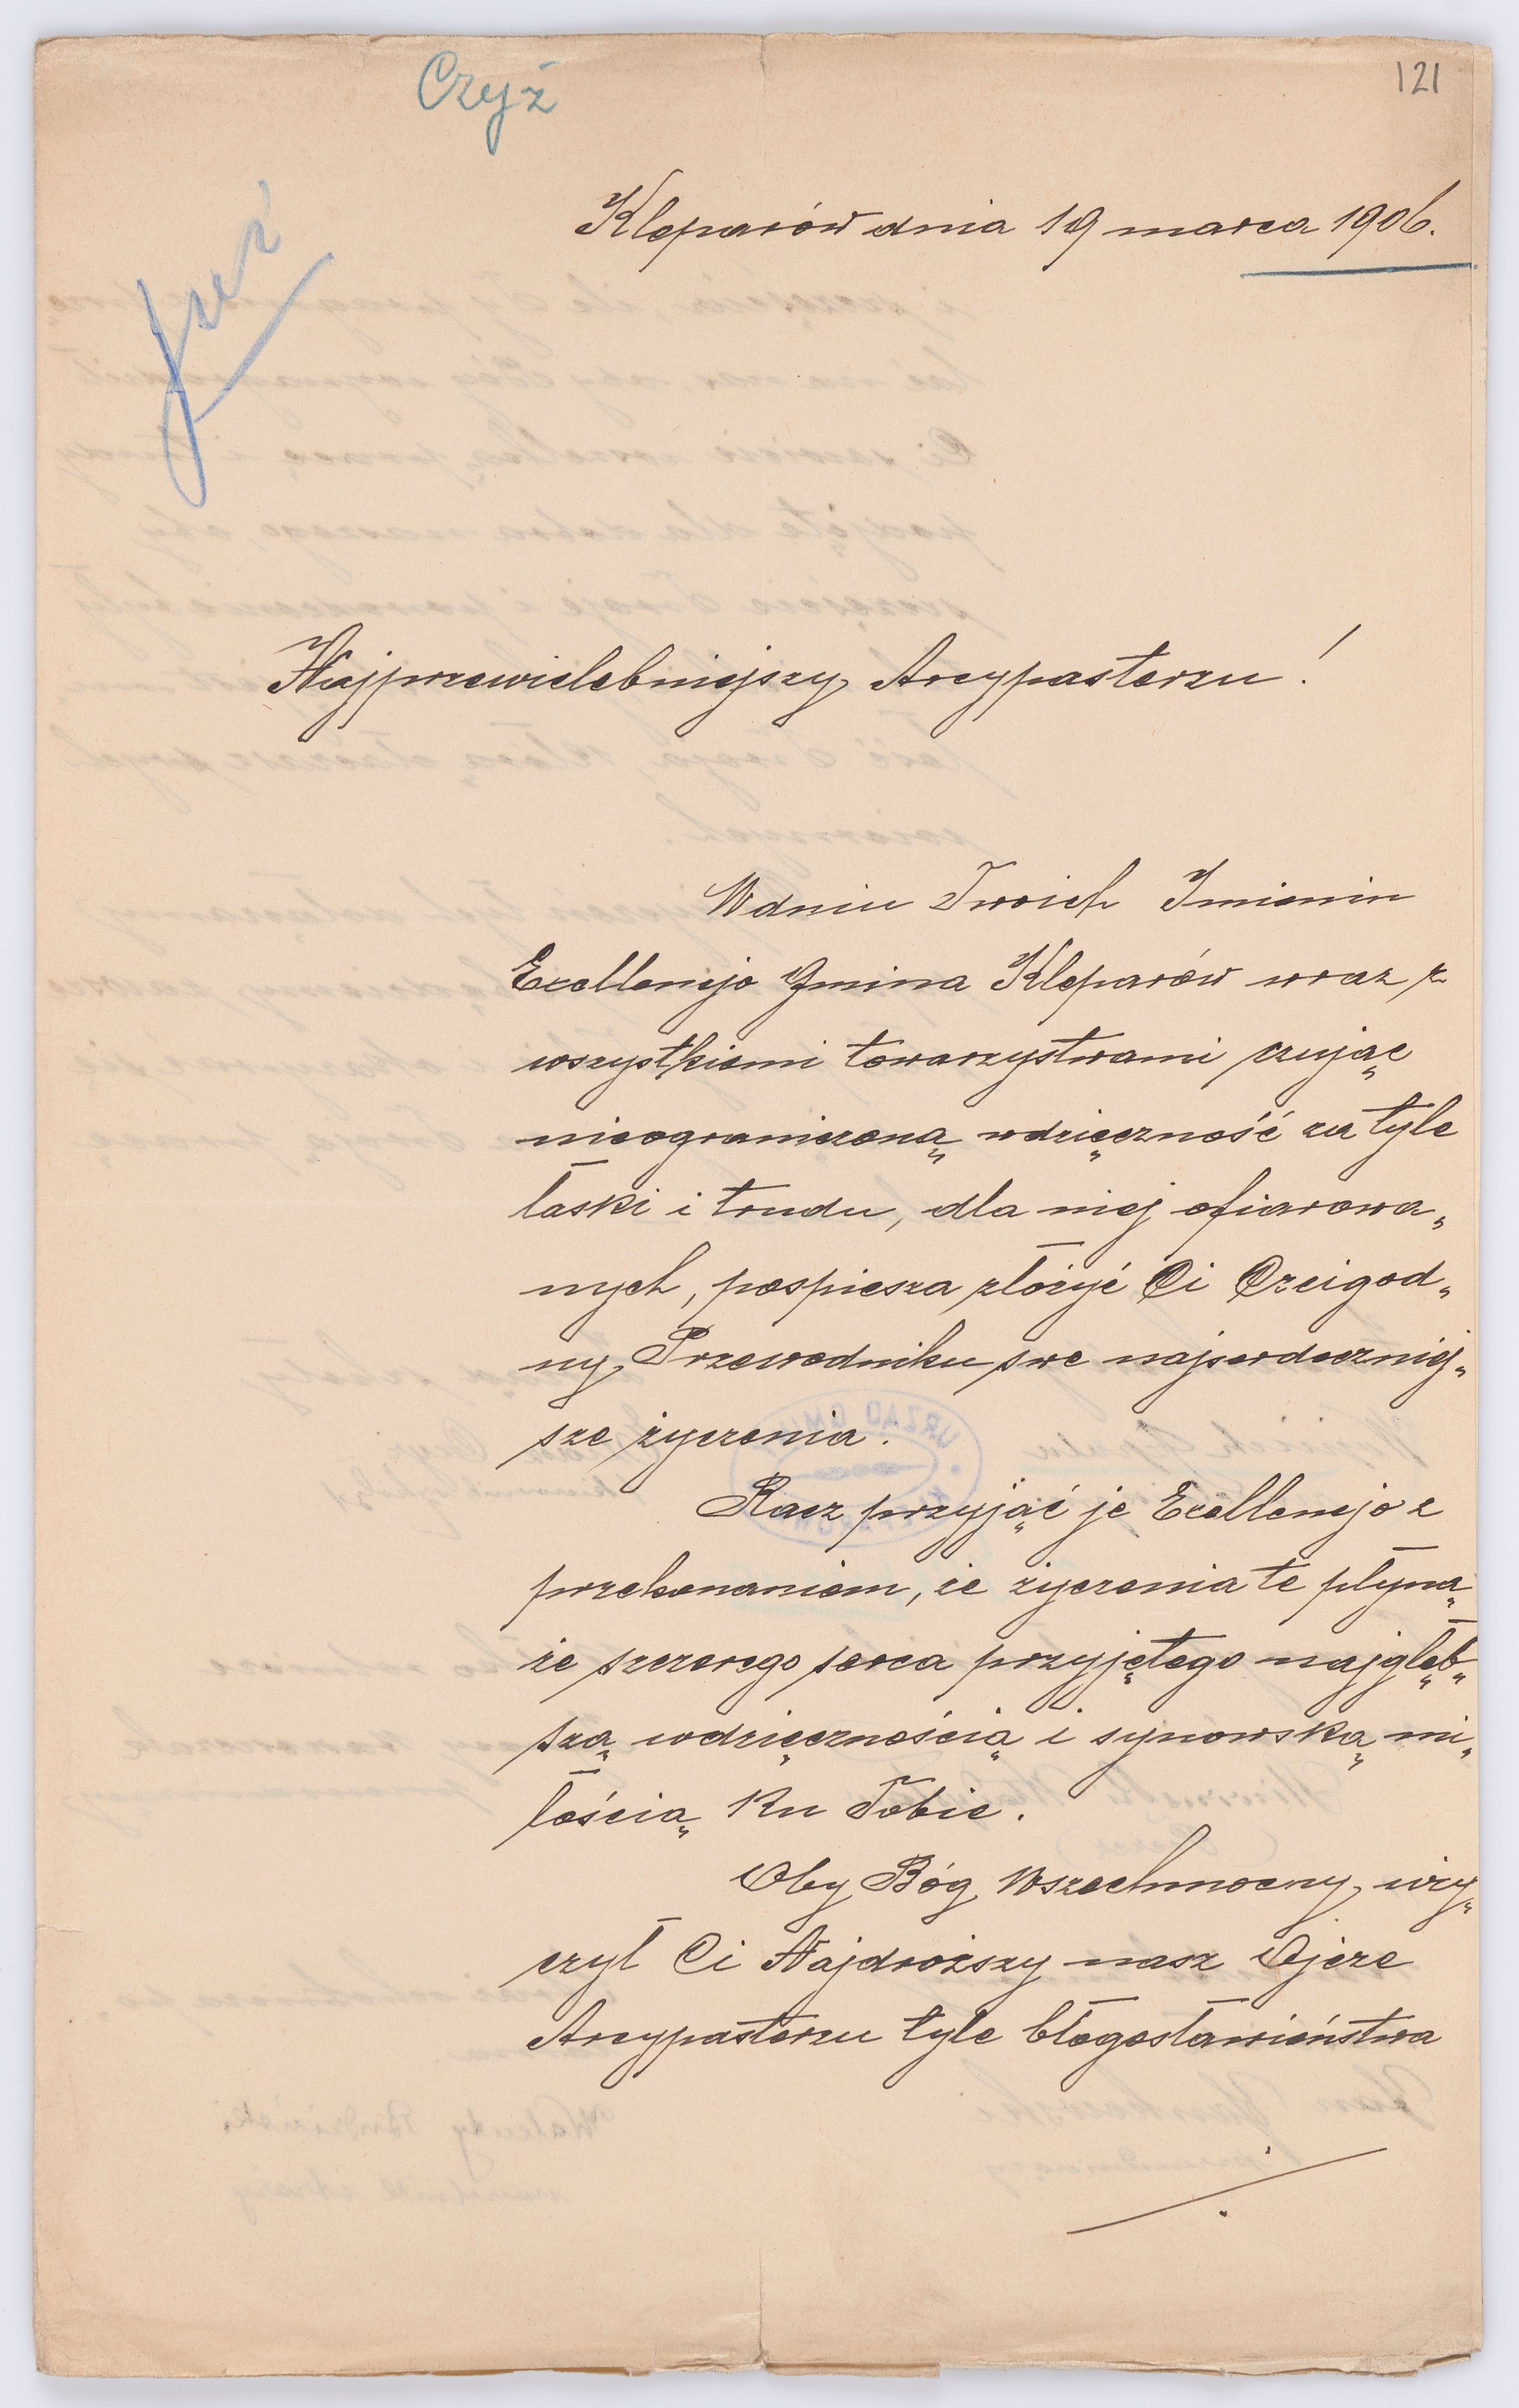 Czyż
121
Kleparów dnia 19 marca 1906.
Najprzewielebniejszy Arcypasterzu!
W dniu Twoich Imienin
Excellencjo Gmina Kleparów wraz z
wszystkiemi towarzystwami czując
nieograniczoną wdzięczność za tyle
łaski i trudu, dla niej ofiarowa„
nych, pospiesza złożyć Ci Czcigod„
ny Przewodniku swe najserdeczniej„
sze życzenia.
Racz przyjąć je Excellencjo z
przekonaniem, że życzenia te płyną
ze szczerego serca przyjętego najgłęb„
szą wdzięcznością i synowską mi„
łością ku Tobie.
Oby Bóg Wszechmocny, uży„
czył Ci Najdroższy nasz Ojcze
Arcypasterzu tyle błogosławieństwa